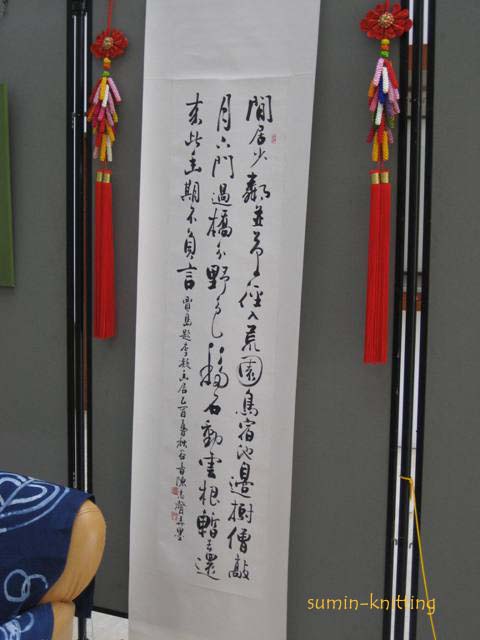 閒居少鄰並草徑入荒園鳥宿池邊樹僧敲
月下門過橋分野色移石動雲根暫去還
來此幽期不負言
賈島題李款幽居乙酉春秋谷古陳
sumin-knitting